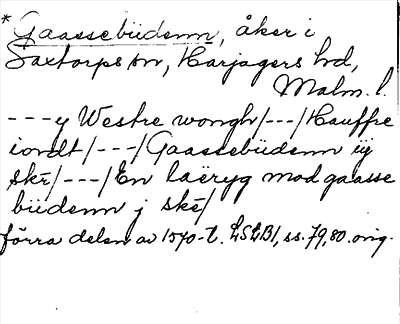 *Gaassebüdenn, åker i
Saxtorps sn, Harjagers hd,
Malm. l.
---y Westre wongh/---/Hauffre
iordt/---/Gaassebüdenn iij
skr̄/---/En laëryg mod gaasse
büdenn j skē/
förra delen av 1570-t. LSLB1, ss. 79, 80. orig.